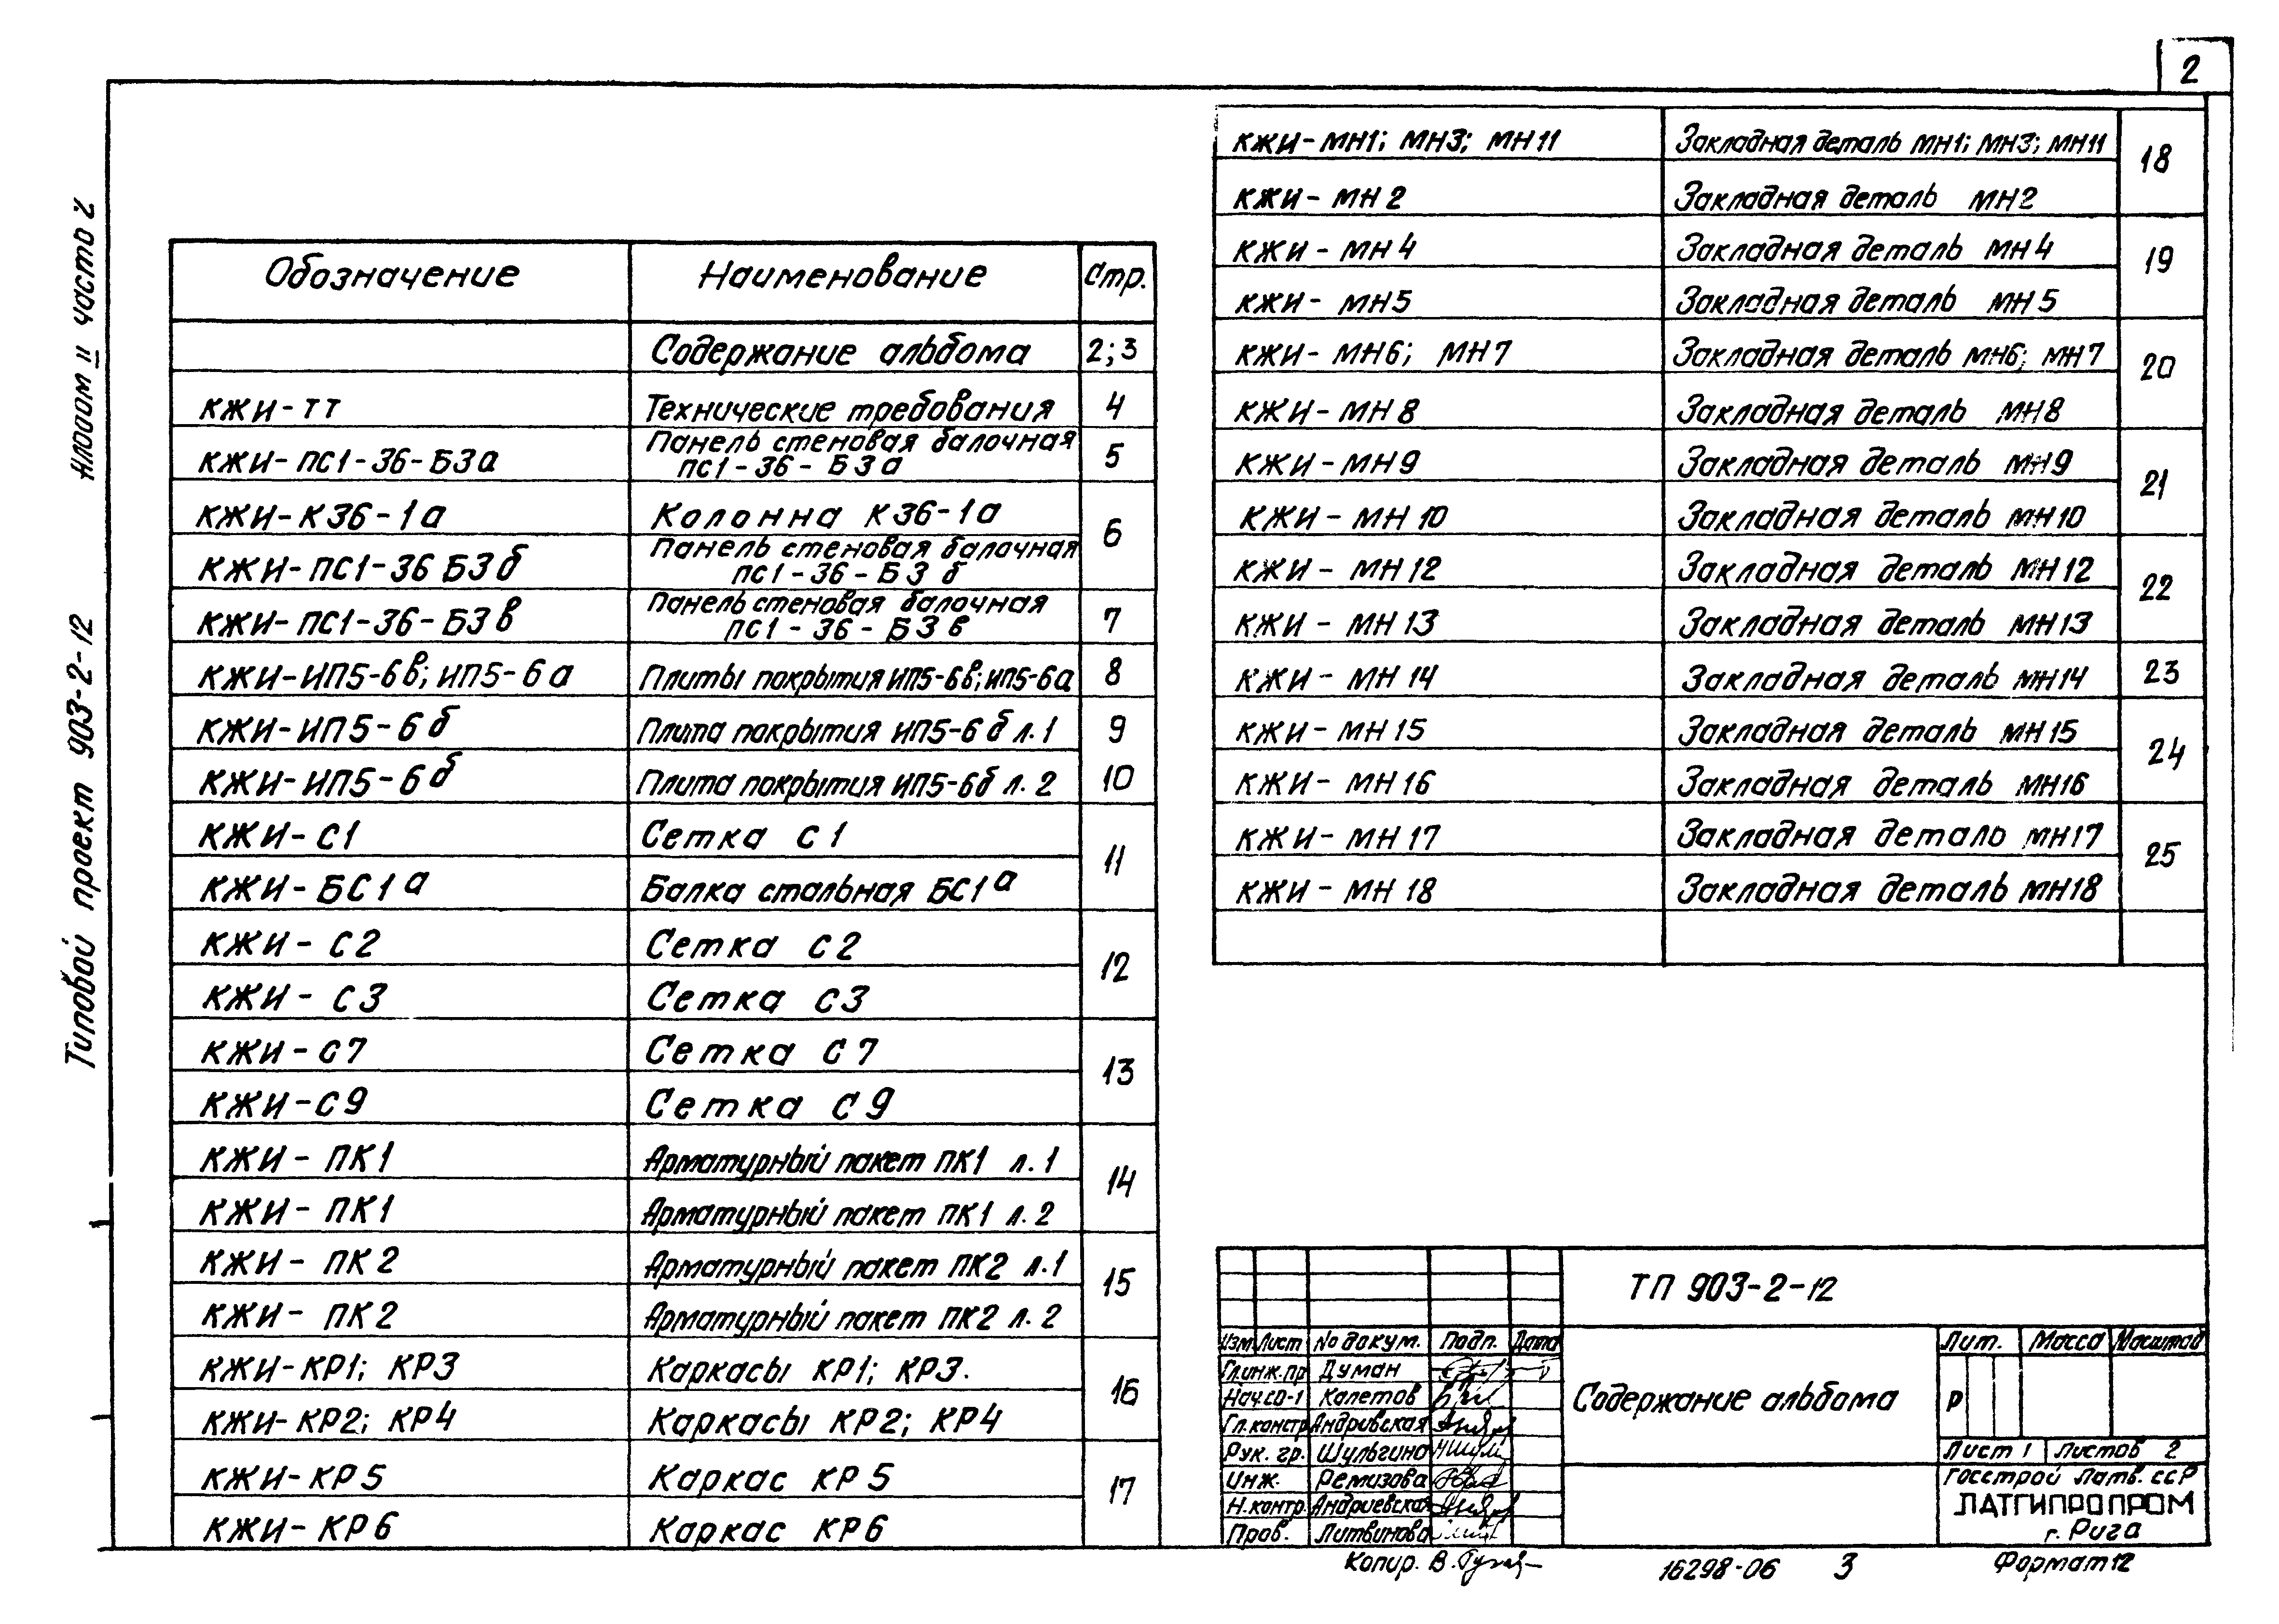 2
Альбом II часть 2
Типовой проект 903-2-12
Обозначение Наименование Стр.
Содержание альбома 2;3
КЖИ-ТТ Технические требования 4
КЖИ-ПС1-36-Б3а Панель стеновая балочная ПС1-36-Б3а 5
КЖИ-К36-1а Колонна К36-1а 6
КЖИ-ПС1-36 Б3б Панель стеновая балочная ПС1-36-Б3б
КЖИ-ПС1-36-Б3в Панель стеновая балочная ПС1-36-Б3в 7
КЖИ-ИП5-6в; ИП5-6а Плиты покрытия ИП5-6в; ИП5-6а 8
КЖИ-ИП5-6б Плита покрытия ИП5-6б л.1 9
КЖИ-ИП5-6б Плита покрытия ИП5-6б л.2 10
КЖИ-С1 Сетка С1 11
КЖИ-БС1а Балка стальная БС1а
КЖИ-С2 Сетка С2 12
КЖИ-С3 Сетка С3
КЖИ-С7 Сетка С7 13
КЖИ-С9 Сетка С9
КЖИ-ПК1 Арматурный пакет ПК1 л.1 14
КЖИ-ПК1 Арматурный пакет ПК1 л.2
КЖИ-ПК2 Арматурный пакет ПК2 л.1 15
КЖИ-ПК2 Арматурный пакет ПК2 л.2
КЖИ-КР1; КР3 Каркасы КР1; КР3. 16
КЖИ-КР2; КР4 Каркасы КР2; КР4
КЖИ-КР5 Каркас КР5 17
КЖИ-КР6 Каркас КР6
КЖИ-МН1; МН3; МН11 Закладная деталь МН1; МН3; МН11 18
КЖИ-МН2 Закладная деталь МН2
КЖИ-МН4 Закладная деталь МН4 19
КЖИ-МН5 Закладная деталь МН5
КЖИ-МН6; МН7 Закладная деталь МН6; МН7 20
КЖИ-МН8 Закладная деталь МН8
КЖИ-МН9 Закладная деталь МН9 21
КЖИ-МН10 Закладная деталь МН10
КЖИ-МН12 Закладная деталь МН12 22
КЖИ-МН13 Закладная деталь МН13
КЖИ-МН14 Закладная деталь МН14 23
КЖИ-МН15 Закладная деталь МН15 24
КЖИ-МН16 Закладная деталь МН16
КЖИ-МН17 Закладная деталь МН17 25
КЖИ-МН18 Закладная деталь МН18
ТП 903-2-12
Изм Лист № докум. Подп. Дата
Гл.инж.пр Думан
Нач.СО-1 Калетов
Гл.констр Андривская
Рук. гр. Шульгина
Инж. Ремизова
Н.контр. Андриевская
Пров. Литвинова
Содержание альбома
Лит. Масса Масштаб
Р
Лист 1 Листов 2
Госстрой Латв. ССР
ЛАТГИПРОПРОМ
г. Рига
Копир. В.
16298-06 3 Формат 12